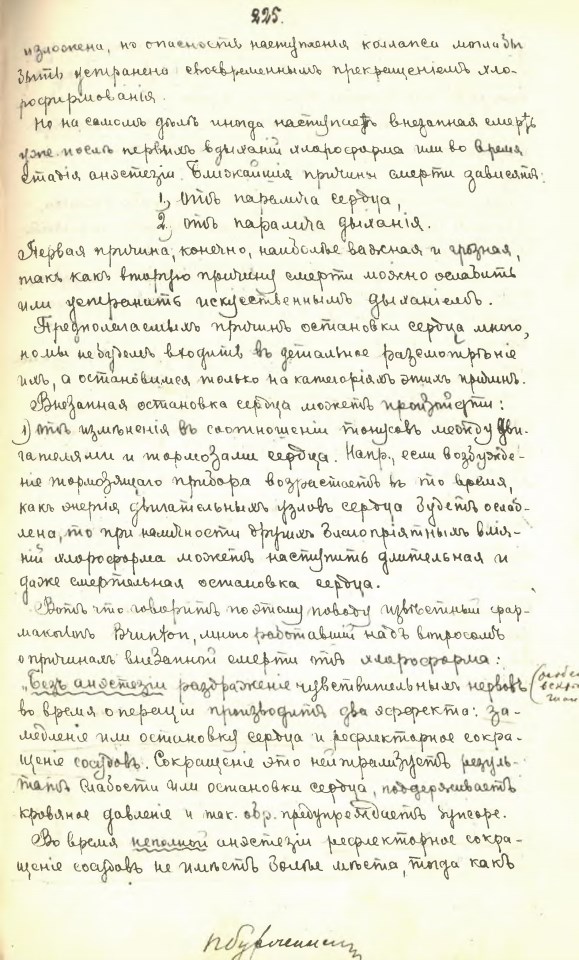 225.
изложена, но опасность наступленія коллапса могла бы
быть устранена своевременнымъ прекращеніемъ хло-
рофирмованія.
Но на самомъ дѣлѣ иногда наступаетъ внезапная смерть
уже послѣ первыхъ вдыханій хлороформа или во время
стадія анэстезіи. Ближайшія причины смерти зависятъ:
1, отъ паралича сердца,
2, отъ паралича дыханія.
Первая причина, конечно, наиболѣе важная и грозная,
такъ какъ вторую причину смерти можно ослабить
или устранить искуественнымъ дыханіемъ.
Предполагаемыхъ причинъ остановки сердца много,
но мы не будемъ входить въ детальное разсмотрѣніе
ихъ, а остановимся только на категоріяхъ этихъ причинъ.
Внезапная остановка сердца можетъ произойти:
1) отъ измѣненія въ соотношеніи тонусовъ между дви-
гателями и тормозами сердца. Напр., если возбужде-
ніе тормозящаго прибора возрастаетъ въ то время,
какъ энергія двигательныхъ узловъ сердца будетъ ослаб-
лена, то при наличности другихъ благопріятныхъ влія-
ній хлороформа можетъ наступить длительная и
даже смертельная остановка сердца.
Вотъ что говоритъ по этому поводу извѣстный фар-
макологъ Brunton, много работавшій надъ вопросомъ
о причинахъ внезапной смерти отъ хлороформа:
"Безъ анэстезіи раздраженіе чувствительныхъ нервовъ
во время операціи производитъ два эффекта: за-
медленіе или остановку сердца и рефлекторное сокра-
щеніе сосудовъ. Сокращеніе это нейтрализуетъ резуль-
татъ слабости или остановки сердца, поддерживаетъ
кровяное давленіе и так. обр. предупреждаетъ syncope.
Во время неполной анэстезіи рефлекторное сокра-
щеніе сосудовъ не имѣетъ болѣе мѣста, тогда какъ